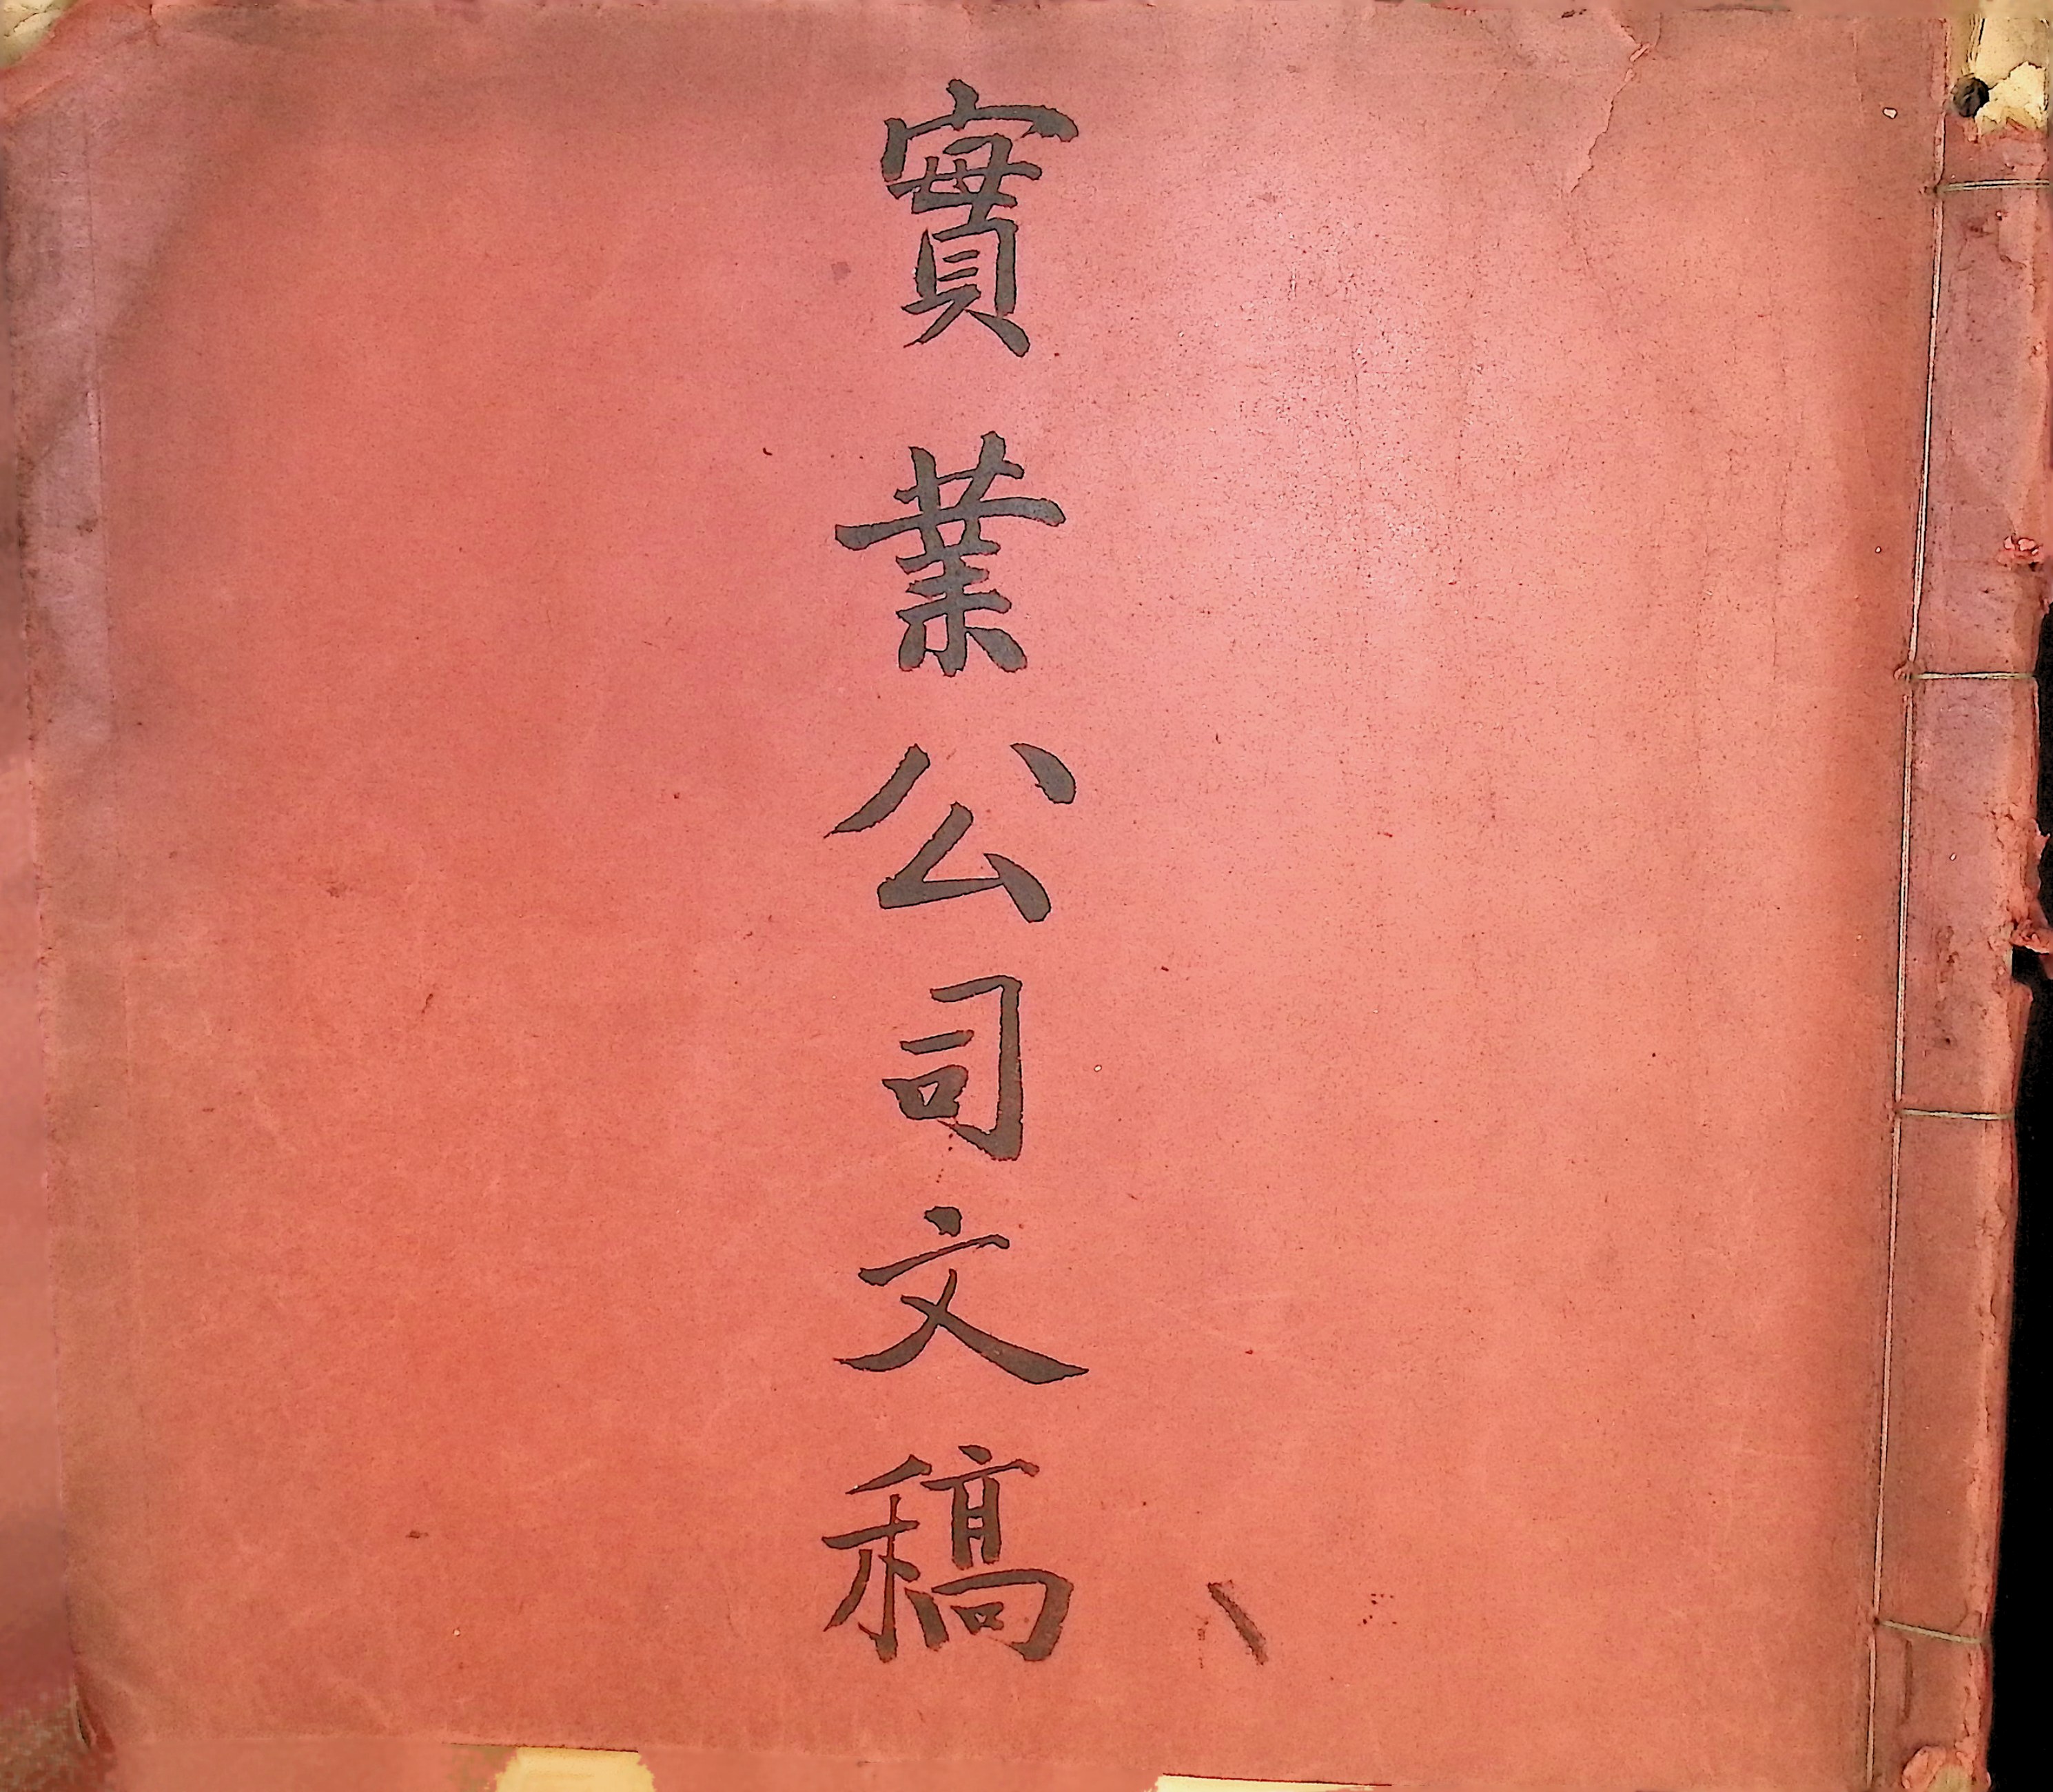 實業公司文稿